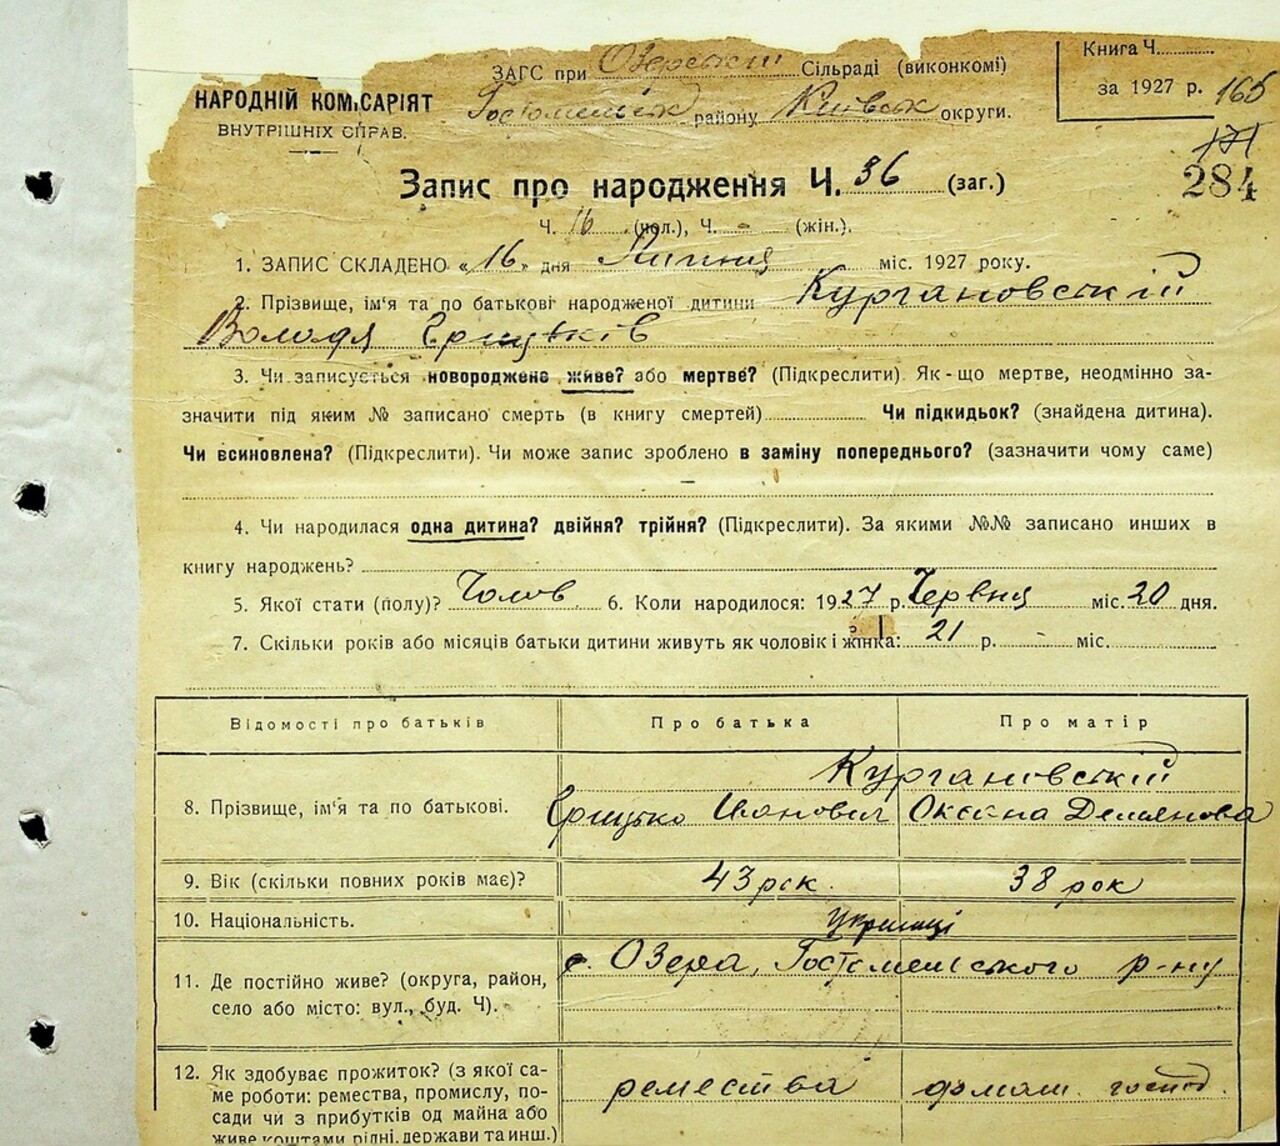 ЗАГС при Озерській Сільраді (виконкомі)
Книга Ч.
НАРОДНІЙ КОМІСАРІЯТ
Гостомельськ району Київськ округи.
за 1927 р. 165
ВНУТРІШНІХ СПРАВ.
171
Запис про народження Ч. 36 (заг.)
284
Ч. 16 (чол.), Ч. - (жін.).
1. ЗАПИС СКЛАДЕНО «16» дня Липня міс. 1927 року.
2. Прізвище, ім'я та по батькові народженої дитини Кургановській
Володя Єрицьків
3. Чи записується новороджене живе? або мертве? (Підкреслити). Як-що мертве, неодмінно за-
значити під яким № записано смерть (в книгу смертей) Чи підкидьок? (знайдена дитина).
Чи всиновлена? (Підкреслити). Чи може запис зроблено в заміну попереднього? (зазначити чому саме)
–
4. Чи народилася одна дитина? двійня? трійня? (Підкреслити). За якими №№ записано инших в
книгу народжень?
5. Якої стати (полу)? Чолов 6. Коли народилося: 1927 р. Червня міс. 20 дня.
7. Скільки років або місяців батьки дитини живуть як чоловік і жінка: 21 р. - міс.
Відомості про батьків Про батька Про матір
Кургановській
8. Прізвище, ім'я та по батькові. Єрицько Іванович Оксана Демянова
9. Вік (скільки повних років має)? 43 рок. 38 рок
10. Національність. Українці
с. Озера, Гостомельського р-ну
11. Де постійно живе? (округа, район,
село або місто: вул., буд. Ч).
12. Як здобуває прожиток? (з якої са-
ме роботи: ремества, промислу, по- ремества домаш. госпід.
сади чи з прибутків од майна або
живе коштами рідні, держави та инш.)